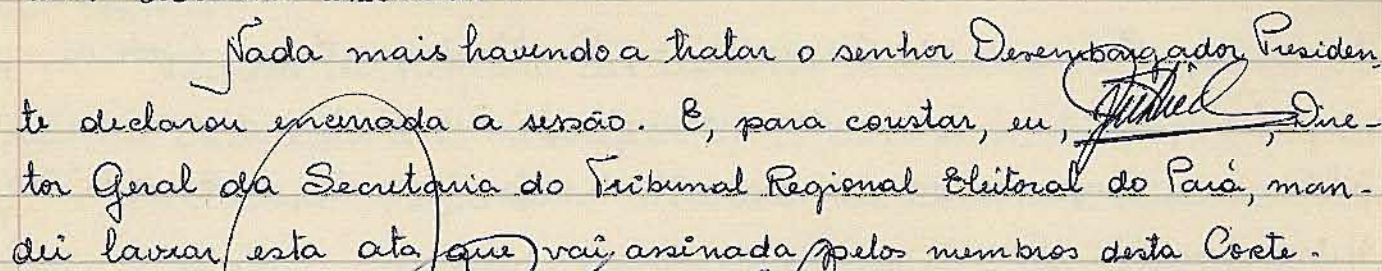 Nada mais havendo a tratar o senhor Desembargador Presiden
te declarou encerrada a sessão. E, para constar, eu, , Dire-
tor Geral da Secretaria do Tribunal Regional Eleitoral do Pará, man-
dei lavrar esta ata que vai assinada pelos membros desta Corte.